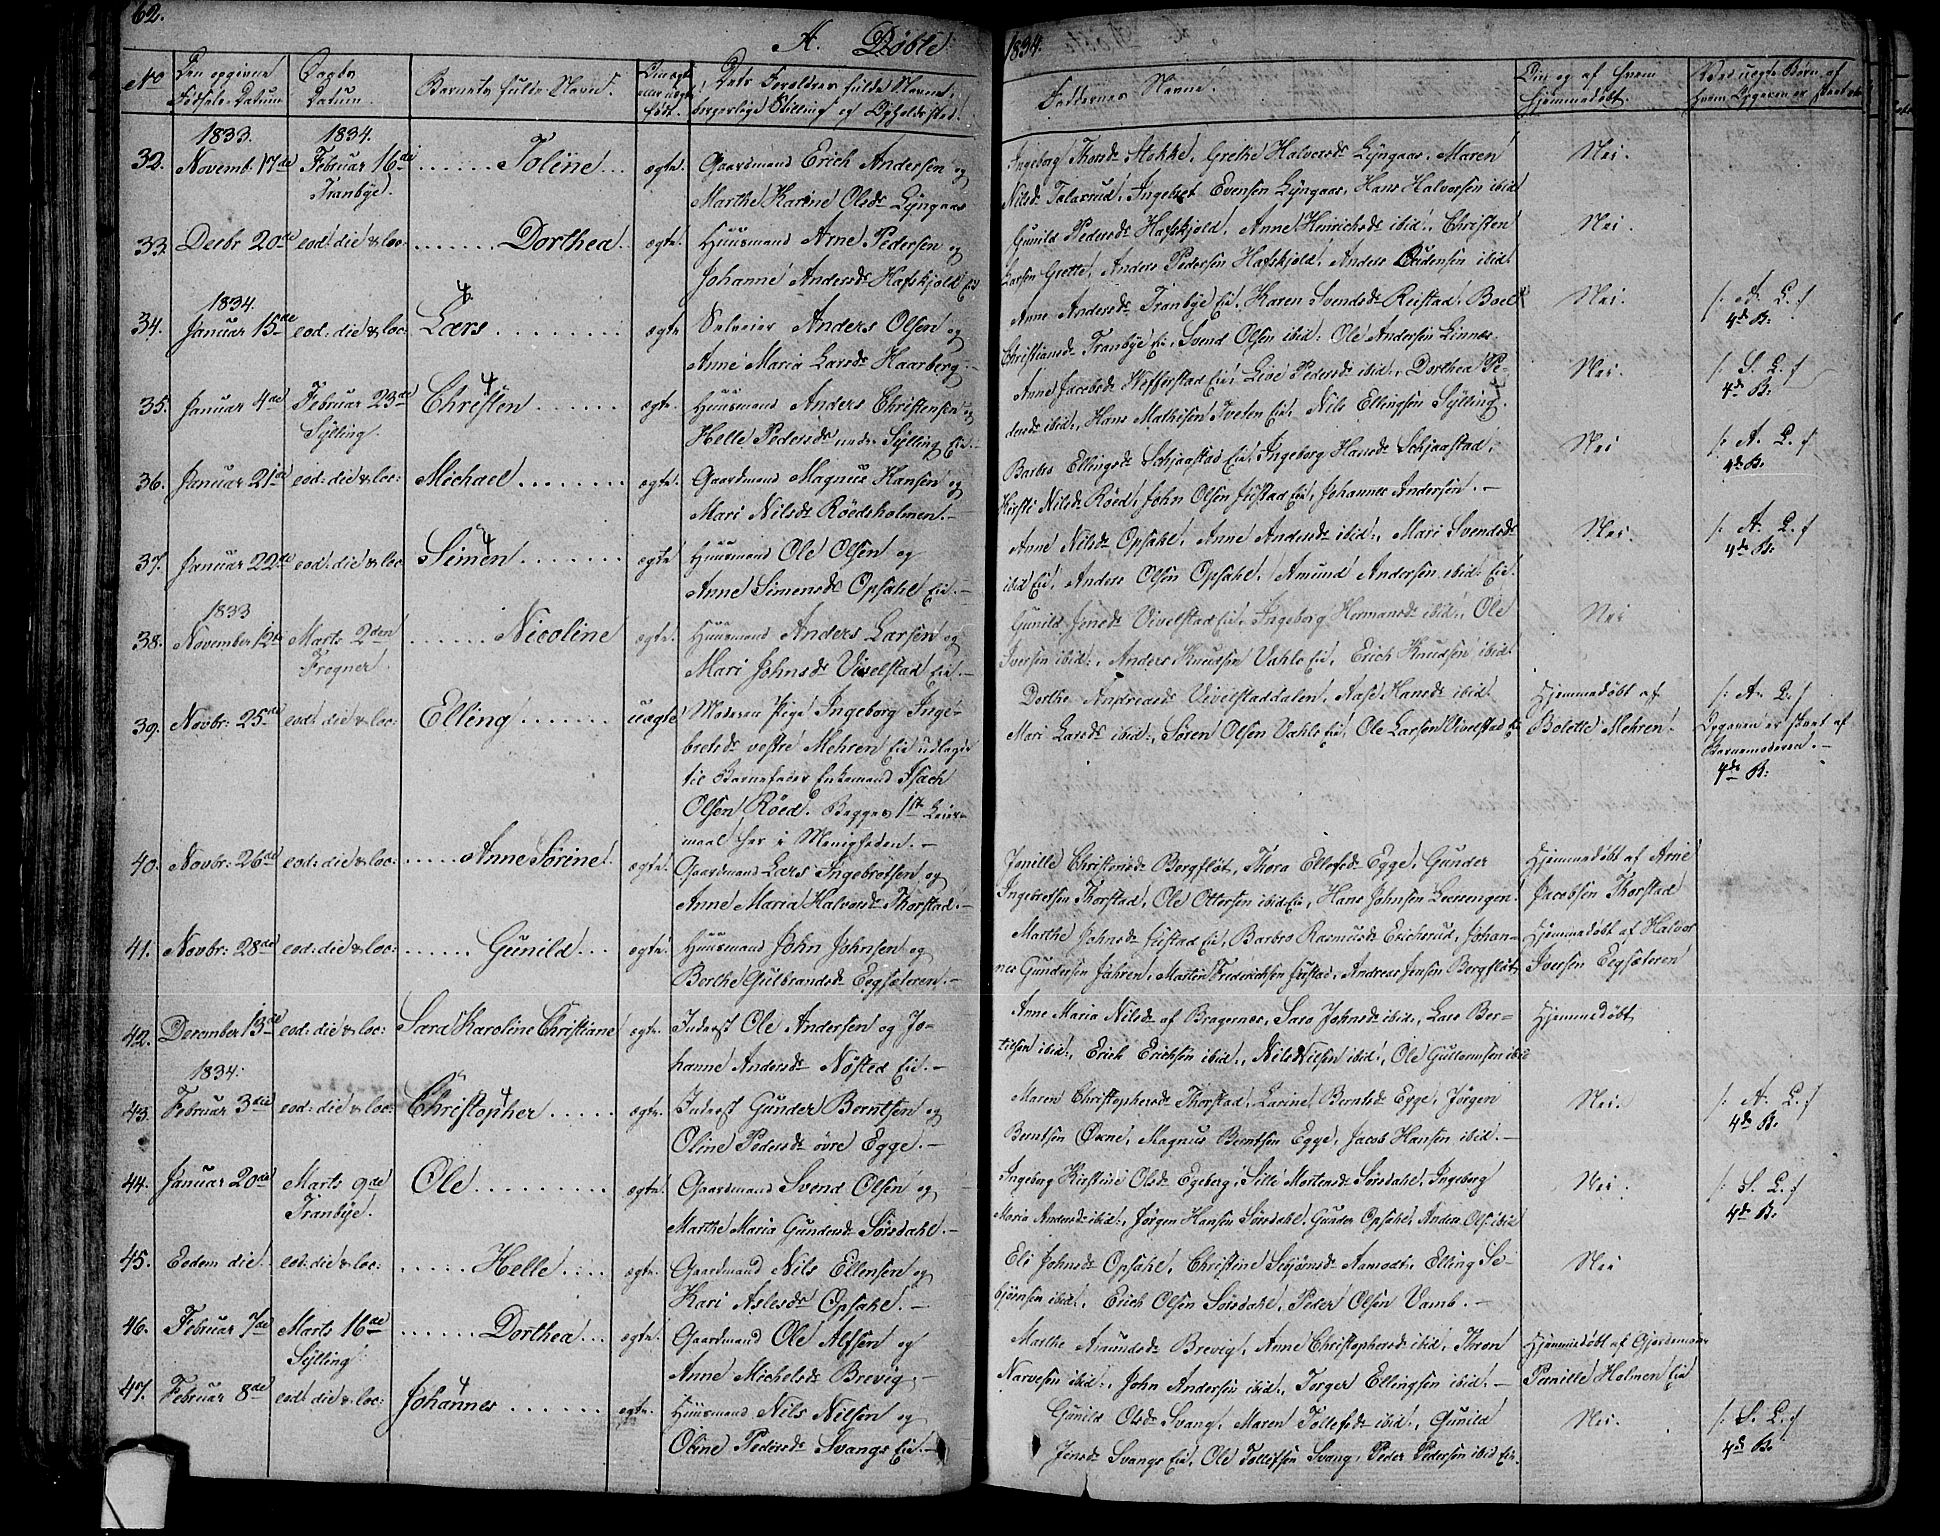 62.
A. Døbte 1834.
No Den opgivne Fødsels-Datum. Daabs Datum. Barnets fulde Navn. Om ægte eller uægte født. Dets Forældres fulde Navne, borgerlige Stilling og Opholdssted.
Faddernes Navne. Om og af hvem hjemmedøbt. Ved uægte Børn af hvem Opgaven er skeet
1833. 1834.
32. Novemb. 17de Februar 16de Toline ægte. Gaardmand Erich Andersen og
Tranbye. Marthe Karine Olsdr Lyngaas
Ingeborg Thorsdr Stokke, Grethe Halvorsdr Lyngaas, Maren Nei.
Nilsdr Talasrud, Ingebret Evensen Lyngaas, Hans Halvorsen ibid
33. Decbr 20de eod: die & loc: Dorthea ægte. Huusmand Arne Pedersen og
Johanne Andersdr Hafskjold Eie
Gunild Pedersdr Hafskjold, Anne Hinrichsdr ibid:, Christen Nei.
Larsen Grette, Anders Pedersen Hafskjold, Anders Audensen ibid:
1834.
34. Januar 15de eod: die & loc: Lars ægte Selveier Anders Olsen og
Anne Maria Larsdr Haarberg.
Anne Andersdr Tranbye Eie, Karen Svendsdr Reistad, Boel Nei. /: A. L. :/
Christiansdr Tranbye Eie, Svend Olsen ibid: Ole Andersen Linnes. 4de B:
35. Januar 4de Februar 23de Christen ægte. Huusmand Anders Christensen og
Sylling. Helle Pedersdr under Sylling Eie.
Anne Jacobsdr Hefferstad Eie, Live Pedersdr ibid:, Dorthea Pe- Nei. /: S. L. :/
dersdr ibid:, Hans Mathisen Tveten Eie, Nils Ellingsen Sylling. 4de B:
36. Januar 21de eod: die & loc: Michael ægte. Gaardmand Magnus Hansen og
Mari Nilsdr Røedsholmen.
Barbro Ellingsdr Schjaastad Eie, Ingeborg Hansdr Schjaastad, Nei /: A. L. :/
Kirsti Nilsdr Røed, John Olsen Justad Eie, Johannes Andersen. 4de B:
37. Januar 22de eod: die & loc: Simen ægte Huusmand Ole Olsen og
Anne Simensdr Opsahl Eie.
Anne Nilsdr Opsahl, Anne Andersdr ibid:, Mari Svendsdr Nei. /: A. L. :/
ibid Eie, Anders Olsen Opsahl, Amund Andersen ibid: Eie. 4de B:
1833
38. November 12te Marts 2den Nicoline ægte. Huusmand Anders Larsen og
Frogner. Mari Johnsdr Vivelstad Eie.
Gunild Jensdr Vivelstad Eie, Ingeborg Hermansdr ibid:, Ole Nei
Iversen ibid:, Anders Knudsen Vahle Eie, Erich Knudsen ibid:
39. Novbr: 25de eod: die & loc: Elling uægte Moderen Pige Ingeborg Inge-
bretsdr vestre Mehren Eie udlagde
til Barnefader Enkemand Isach
Olsen Røed. Begges 1ste Leier-
maal her i Menigheden.
Dorthe Andreasdr Vivelstaddalen, Aase Hansdr ibid: Hjemmedøbt af /: A. L. :/
Mari Larsdr ibid:, Søren Olsen Vahle Eie, Ole Larsen Vivelstad Eie Bolette Mehren. Opgaven er skeet af
Barnemoderen.
4de B:
40. Novbr: 26de eod: die & loc: Anne Sørine ægte. Gaardmand Lars Ingebretsen og
Anne Maria Halvorsdr Thorstad.
Jonille Christensdr Bergfløt, Thora Ellefsdr Egge, Gunder Hjemmedøbt af Arne
Ingebretsen Thorstad, Ole Ottersen ibid Eie, Hans Johnsen Leersengen. Jacobsen Thorstad
41. Novbr: 28de eod: die & loc: Gunild ægte. Huusmand John Johnsen og
Berthe Gulbrandsdr Eegsæteren.
Marthe Johnsdr Justad Eie, Barbro Rasmusdr Erichsrud, Johan- Hjemmedøbt af Halvor
nes Gundersen Jahren, Matten Frederichsen Justad, Andreas Jensen Bergfløt. Iversen Eegsæteren
42. December 13de eod: die & loc: Sara Karoline Christiane ægte. Inderst Ole Andersen og Jo-
hanne Andersdr Nøsted Eie.
Anne Maria Nilsdr af Bragernes, Sara Johnsdr ibid:, Lars Ber- Hjemmedøbt
tilsen ibid:, Erich Erichsen ibid:, Nils Nilsen ibid:, Ole Guttormsen ibid
1834.
43. Februar 3die eod: die & loc: Christopher ægte. Inderst Gunder Berntsen og
Oline Pedersdr øvre Egge.
Maren Christophersdr Thorstad, Larine Berntsdr Egge, Jørgen Nei. /: A. L. :/
Berntsen Øxne, Magnus Berntsen Egge, Jacob Hansen ibid. 4de B:
44. Januar 20de Marts 9de Ole ægte. Gaardmand Svend Olsen og
Tranbye. Marthe Maria Gundersdr Sørsdahl.
Ingeborg Kirstine Olsdr Egeberg, Sille Mortensdr Sørsdahl, Ingeborg Nei. /: S. L. :/
Maria Andersdr ibid:, Jørgen Hansen Sørsdahl, Gunder Opsahl, Anders Ols: ibid 4de B:
45. Eodem die. eod: die & loc: Helle ægte. Gaardmand Nils Ellensen og
Kari Aslesdr Opsahl.
Eli Johnsdr Opsahl, Christine Schjønsdr Aamodt, Elling Se- Nei
bjørnsen ibid:, Erich Olsen Sørsdahl, Peder Olsen Vamb.
46. Februar 7de Marts 16de Dorthea ægte. Gaardmand Ole Alfsen og
Sylling Anne Michelsdr Brevig.
Marthe Amundsdr Brevig, Anne Christophersdr ibid, Thron Hjemmedøbt af Gjordemoer
Narvesen ibid:, John Andersen ibid:, Torger Ellingsen ibid. Pernille Holmen Eie
47. Februar 8de eod: die & loc: Johannes ægte. Huusmand Nils Nilsen og
Oline Pedersdr Svangs Eie.
Gunild Olsdr Svang, Maren Tollefsdr ibid:, Gunild Nei. /: S. L. :/
Jensdr Svangs Eie, Ole Tollefsen Svang, Peder Pedersen ibid Eie. 4de B: